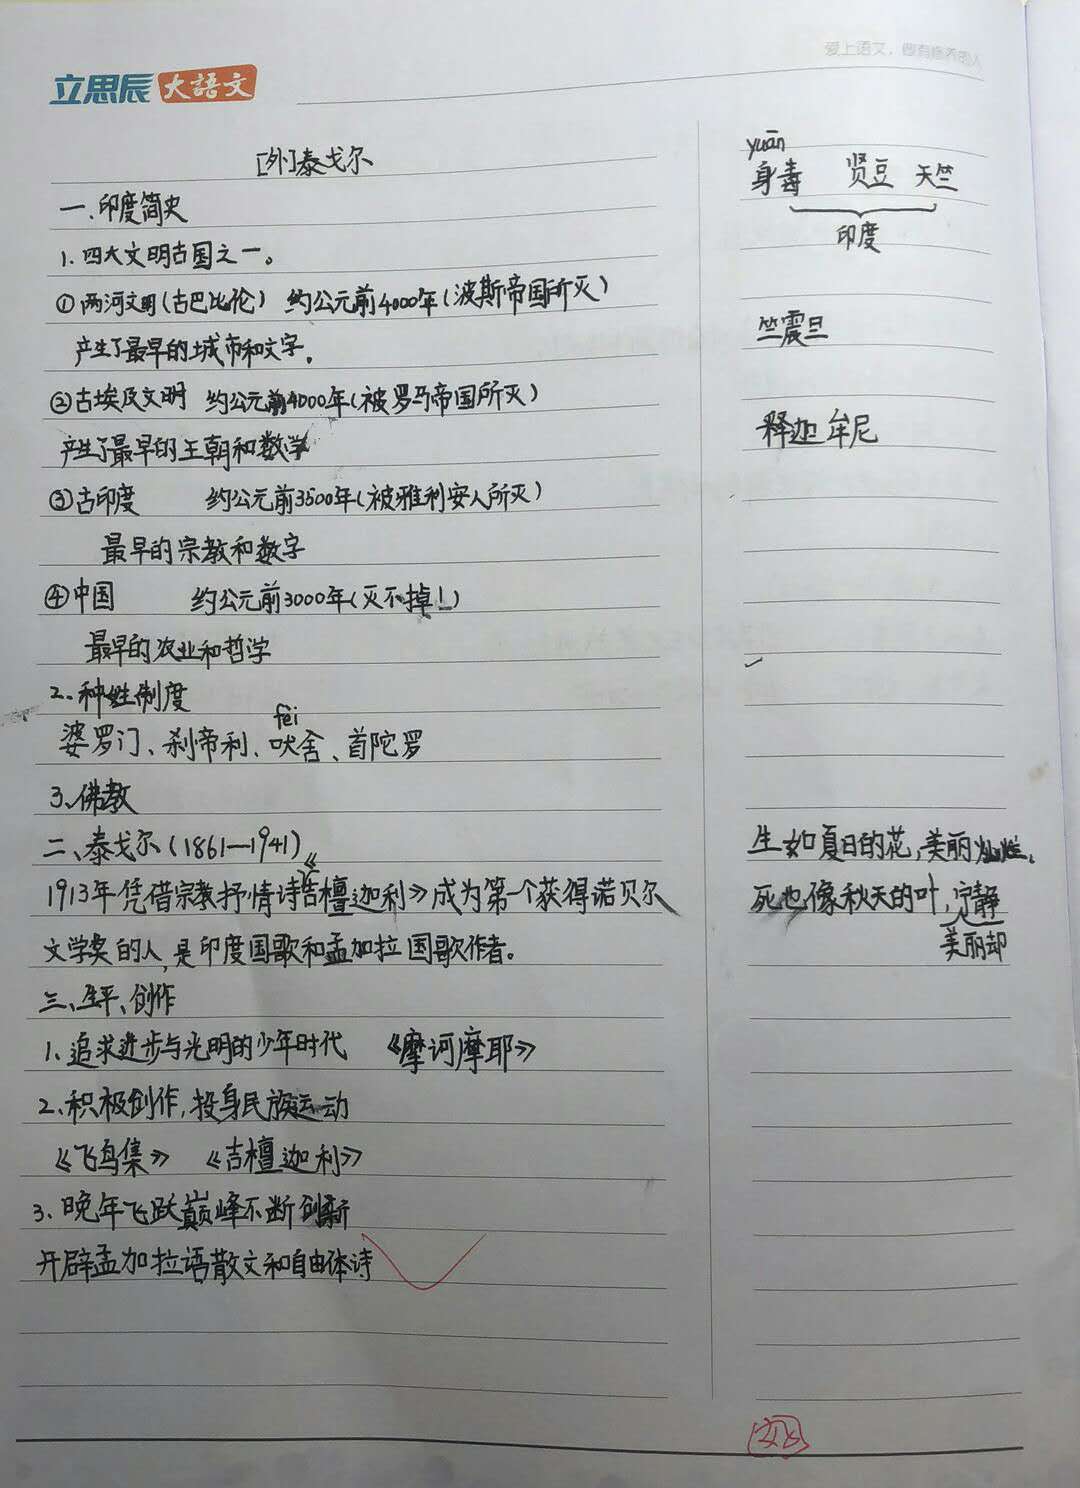 立思辰大語文
[外]泰戈尔
一、印度简史
1. 四大文明古国之一。
①两河文明(古巴比伦) 约公元前4000年(波斯帝国所灭)
产生了最早的城市和文字。
②古埃及文明 约公元前4000年(被罗马帝国所灭)
产生了最早的王朝和数学
③古印度 约公元前3500年(被雅利安人所灭)
最早的宗教和数字
④中国 约公元前3000年(灭不掉!)
最早的农业和哲学
2. 种姓制度
fei
婆罗门、刹帝利、吠舍、首陀罗
3、佛教
二、泰戈尔(1861—1941)
1913年凭借宗教抒情诗《吉檀迦利》成为第一个获得诺贝尔
文学奖的人,是印度国歌和孟加拉国歌作者。
三、生平、创作
1、追求进步与光明的少年时代 《摩诃摩耶》
2、积极创作,投身民族运动
《飞鸟集》 《吉檀迦利》
3、晚年飞跃巅峰不断创新
开辟孟加拉语散文和自由体诗
yuān
身毒 贤豆 天竺
印度
竺震旦
释迦牟尼
生如夏日的花,美丽灿烂。
死也像秋天的叶,宁静
美丽却